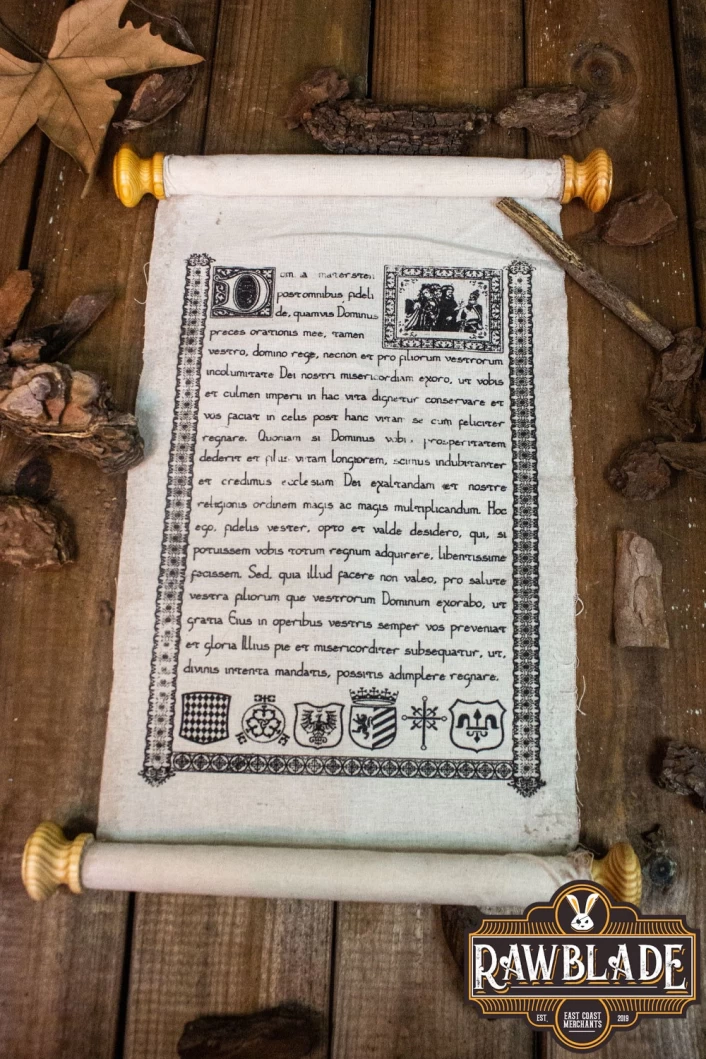 D
post omnibus fideli
de, quamvis Dominus
preces orationis mee, tamen
vestro, domino rege, necnon et pro filiorum vestrorum
incolumitate Dei nostri misericordiam exoro, ut vobis
et culmen imperii in hac vita dignetur conservare et
vos faciat in celis post hanc vitam se cum feliciter
regnare. Quoniam si Dominus vobis prosperitatem
dederit et filiis vitam longiorem, scimus indubitanter
et credimus ecclesiam Dei exaltandam et nostre
religionis ordinem magis ac magis multiplicandum. Hoc
ego, fidelis vester, opto et valde desidero, qui, si
potuissem vobis totum regnum adquirere, libentissime
facissem. Sed, quia illud facere non valeo, pro salute
vestra filiorum que vestrorum Dominum exorabo, ut
gratia Eius in operibus vestris semper vos preveniat
et gloria Illius pie et misericorditer subsequatur, ut,
divinis intenta mandatis, possitis adimplere regnare.
RAWBLADE
EST. EAST COAST 2019
MERCHANTS